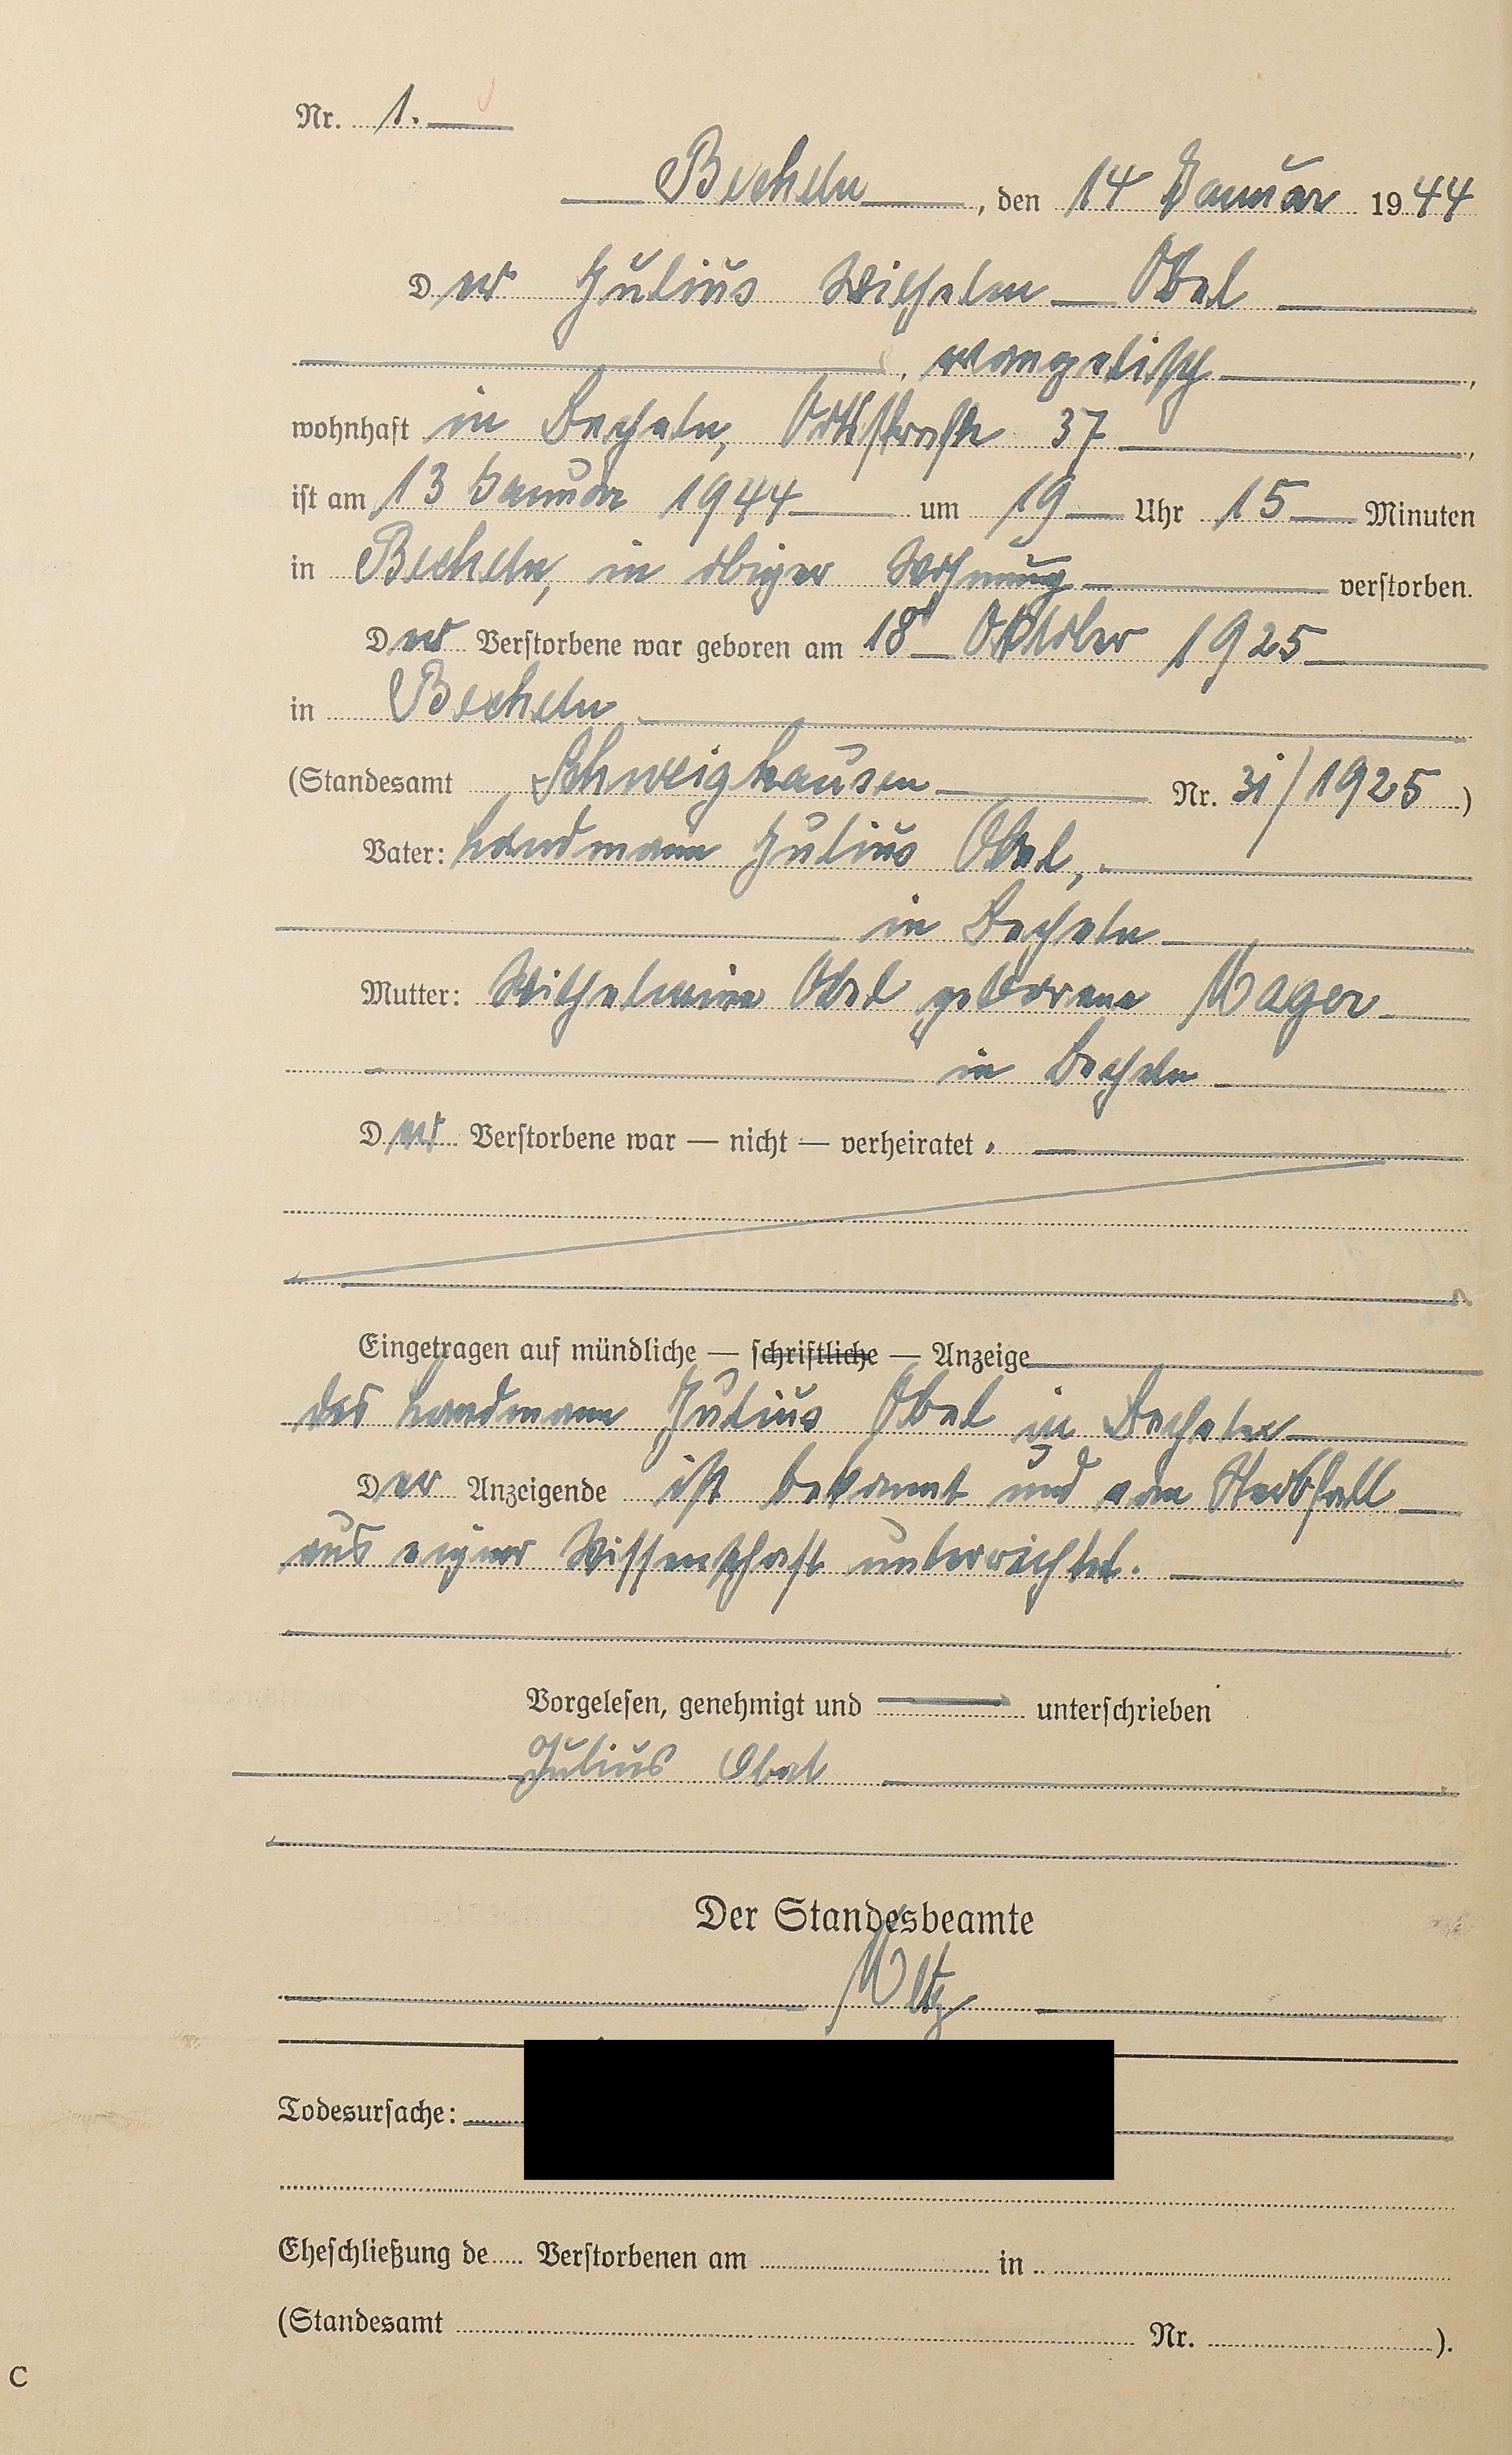 Nr. 1.
Becheln, den 14 Januar 1944
Der Julius Wilhelm Obel
, evangelisch,
wohnhaft in Becheln, Ortsstraße 37,
ist am 13 Januar 1944 um 19 Uhr 15 Minuten
in Becheln, in obiger Wohnung verstorben.
Der Verstorbene war geboren am 18 Oktober 1925
in Becheln
(Standesamt Schweighausen Nr. 31/1925)
Vater: Landmann Julius Obel,
in Becheln
Mutter: Wilhelmine Obel geborene Mager
in Becheln
Der Verstorbene war — nicht — verheiratet.
Eingetragen auf mündliche — schriftliche — Anzeige
des Landmann Julius Obel in Becheln
Der Anzeigende ist bekannt und vom Sterbfall
aus eigner Wissenschaft unterrichtet.
Vorgelesen, genehmigt und unterschrieben
Julius Obel
Der Standesbeamte
Todesursache:
Eheschließung de Verstorbenen am in
(Standesamt Nr. ).
C